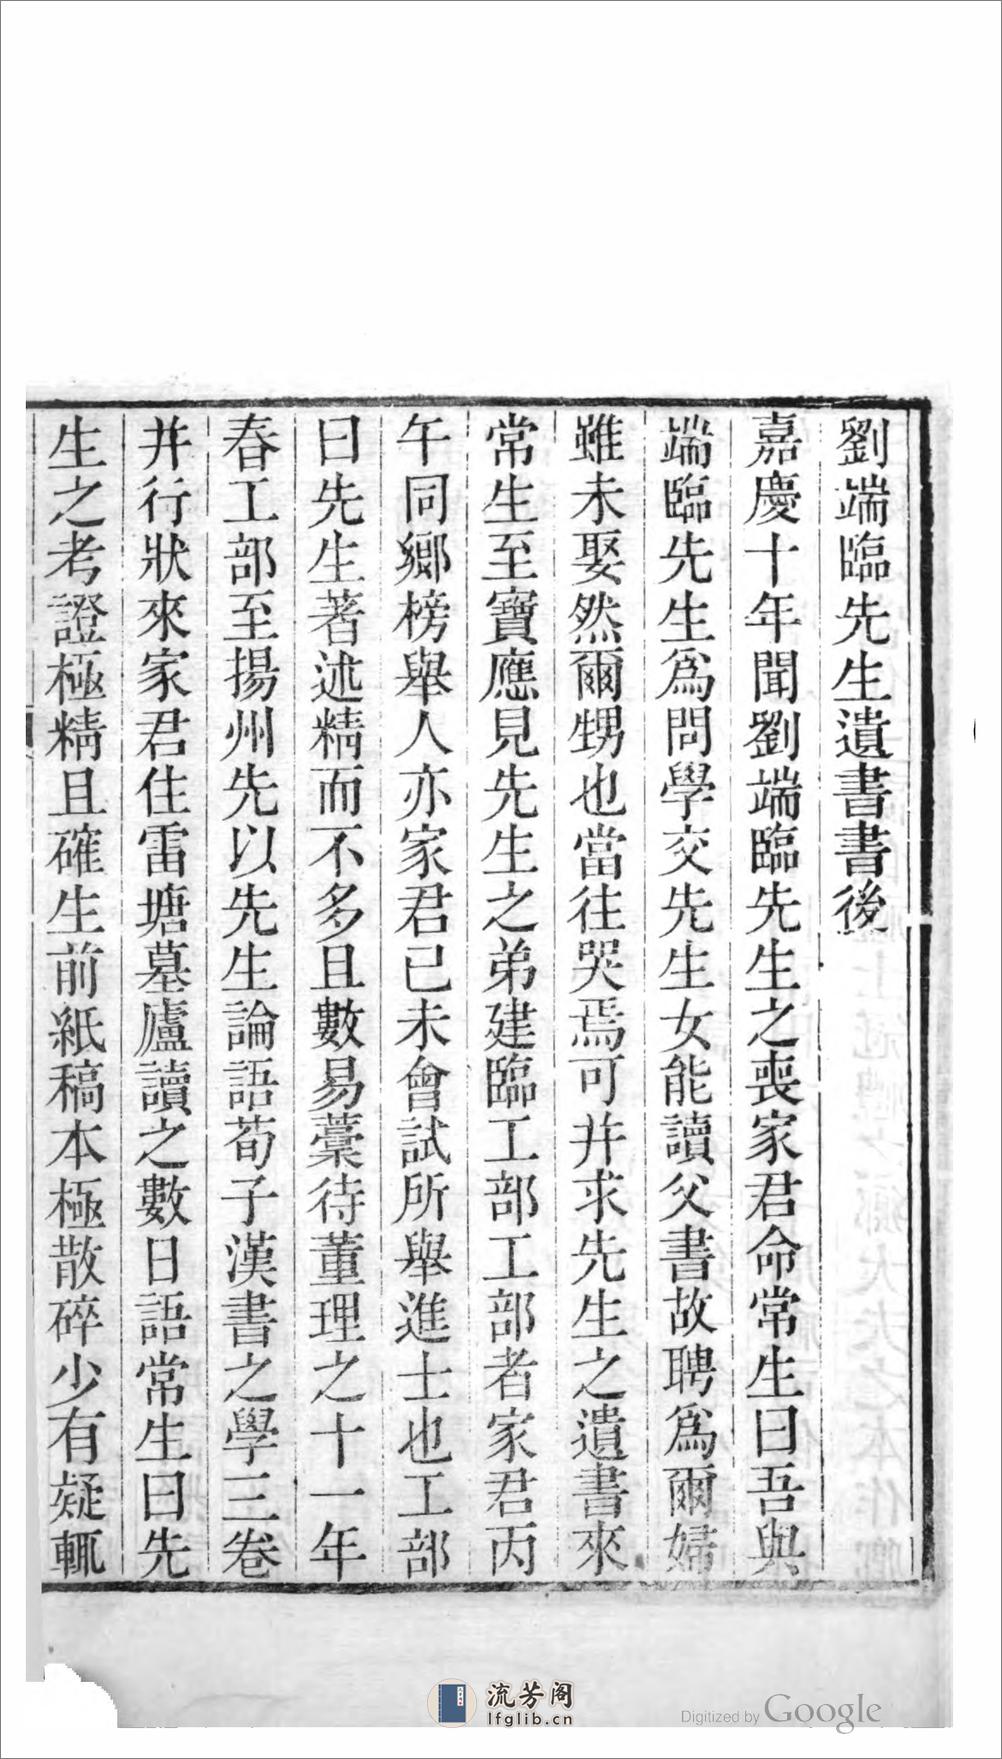 劉端臨先生遺書書後
嘉慶十年聞劉端臨先生之喪家君命常生曰吾與
端臨先生爲問學交先生女能讀父書故聘爲爾婦
雖未娶然爾甥也當往哭焉可幷求先生之遺書來
常生至寶應見先生之弟建臨工部工部者家君丙
午同鄉榜舉人亦家君己未會試所舉進士也工部
曰先生著述精而不多且數易藁待董理之十一年
春工部至揚州先以先生論語荀子漢書之學三卷
幷行狀來家君住雷塘墓廬讀之數日語常生曰先
生之考證極精且確生前紙稿本極散碎少有疑輒
流芳阁
lfglib.cn
Digitized by Google